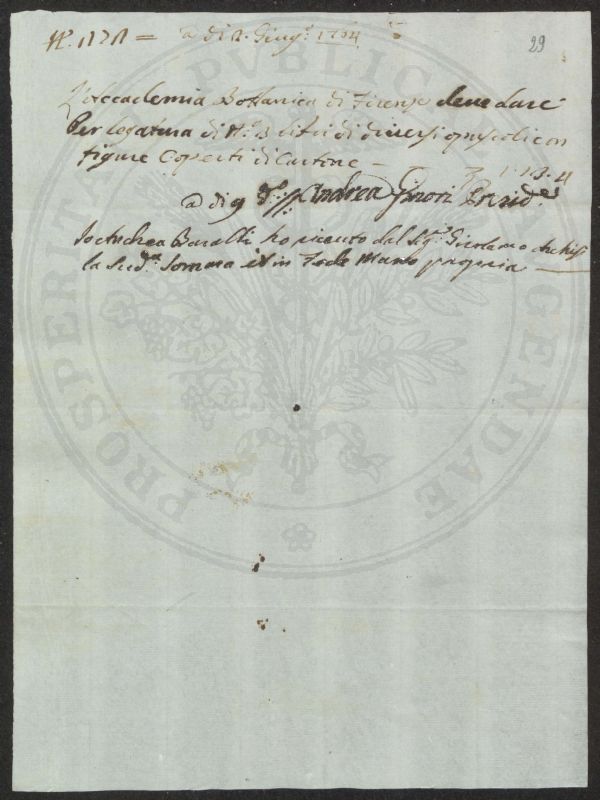 a di 2. Giug.º 1764
29
L'Accademia Bottanica di Firenze deve dare
Per legatura di Nº 3 libri di diversi opuscoli con
figure Coperti di Cartone — 
a di 9 dº Andrea Ginori Presid.te
Io Andrea Baralli ho ricevuto dal Sig.r Girolamo
la Sud.a Somma et in fede Mano propria
PROSPERITATI PUBLICAE AUGENDAE